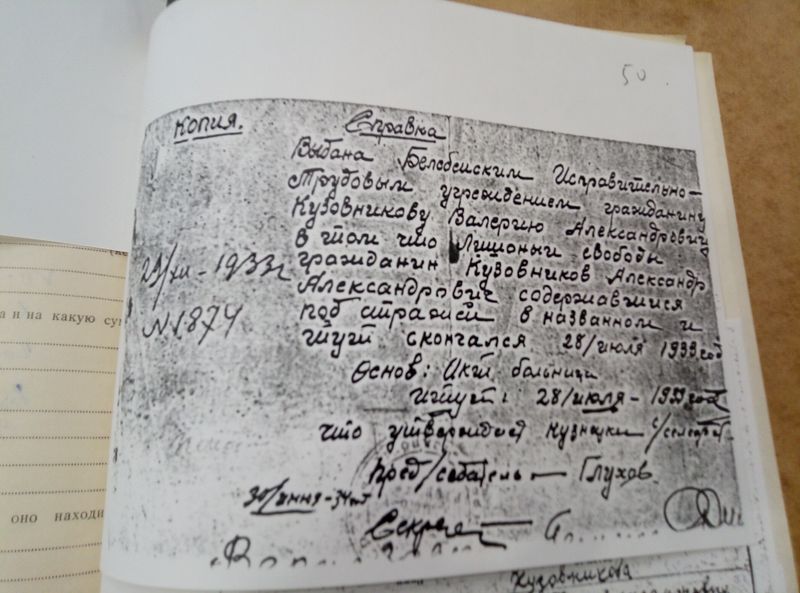 50
Копия. Справка
Выдана Белебеийским Исправительно-
Трудовым учреждением гражданину
Кузовникову Валерию Александровичу
в том что Лишоный свободы
29/XII-1933г гражданин Кузовников Александр
Александрович содержавшийся
N 1874 под стражей в названном и
скончался 28/июля 1933 год
Основ: Акт больници
28/июля - 1933 года
что утверждает с/совет
Пред/седатель — Глухов
30/ -34
Секрет
а и на какую су
оно находи
Кузовникова